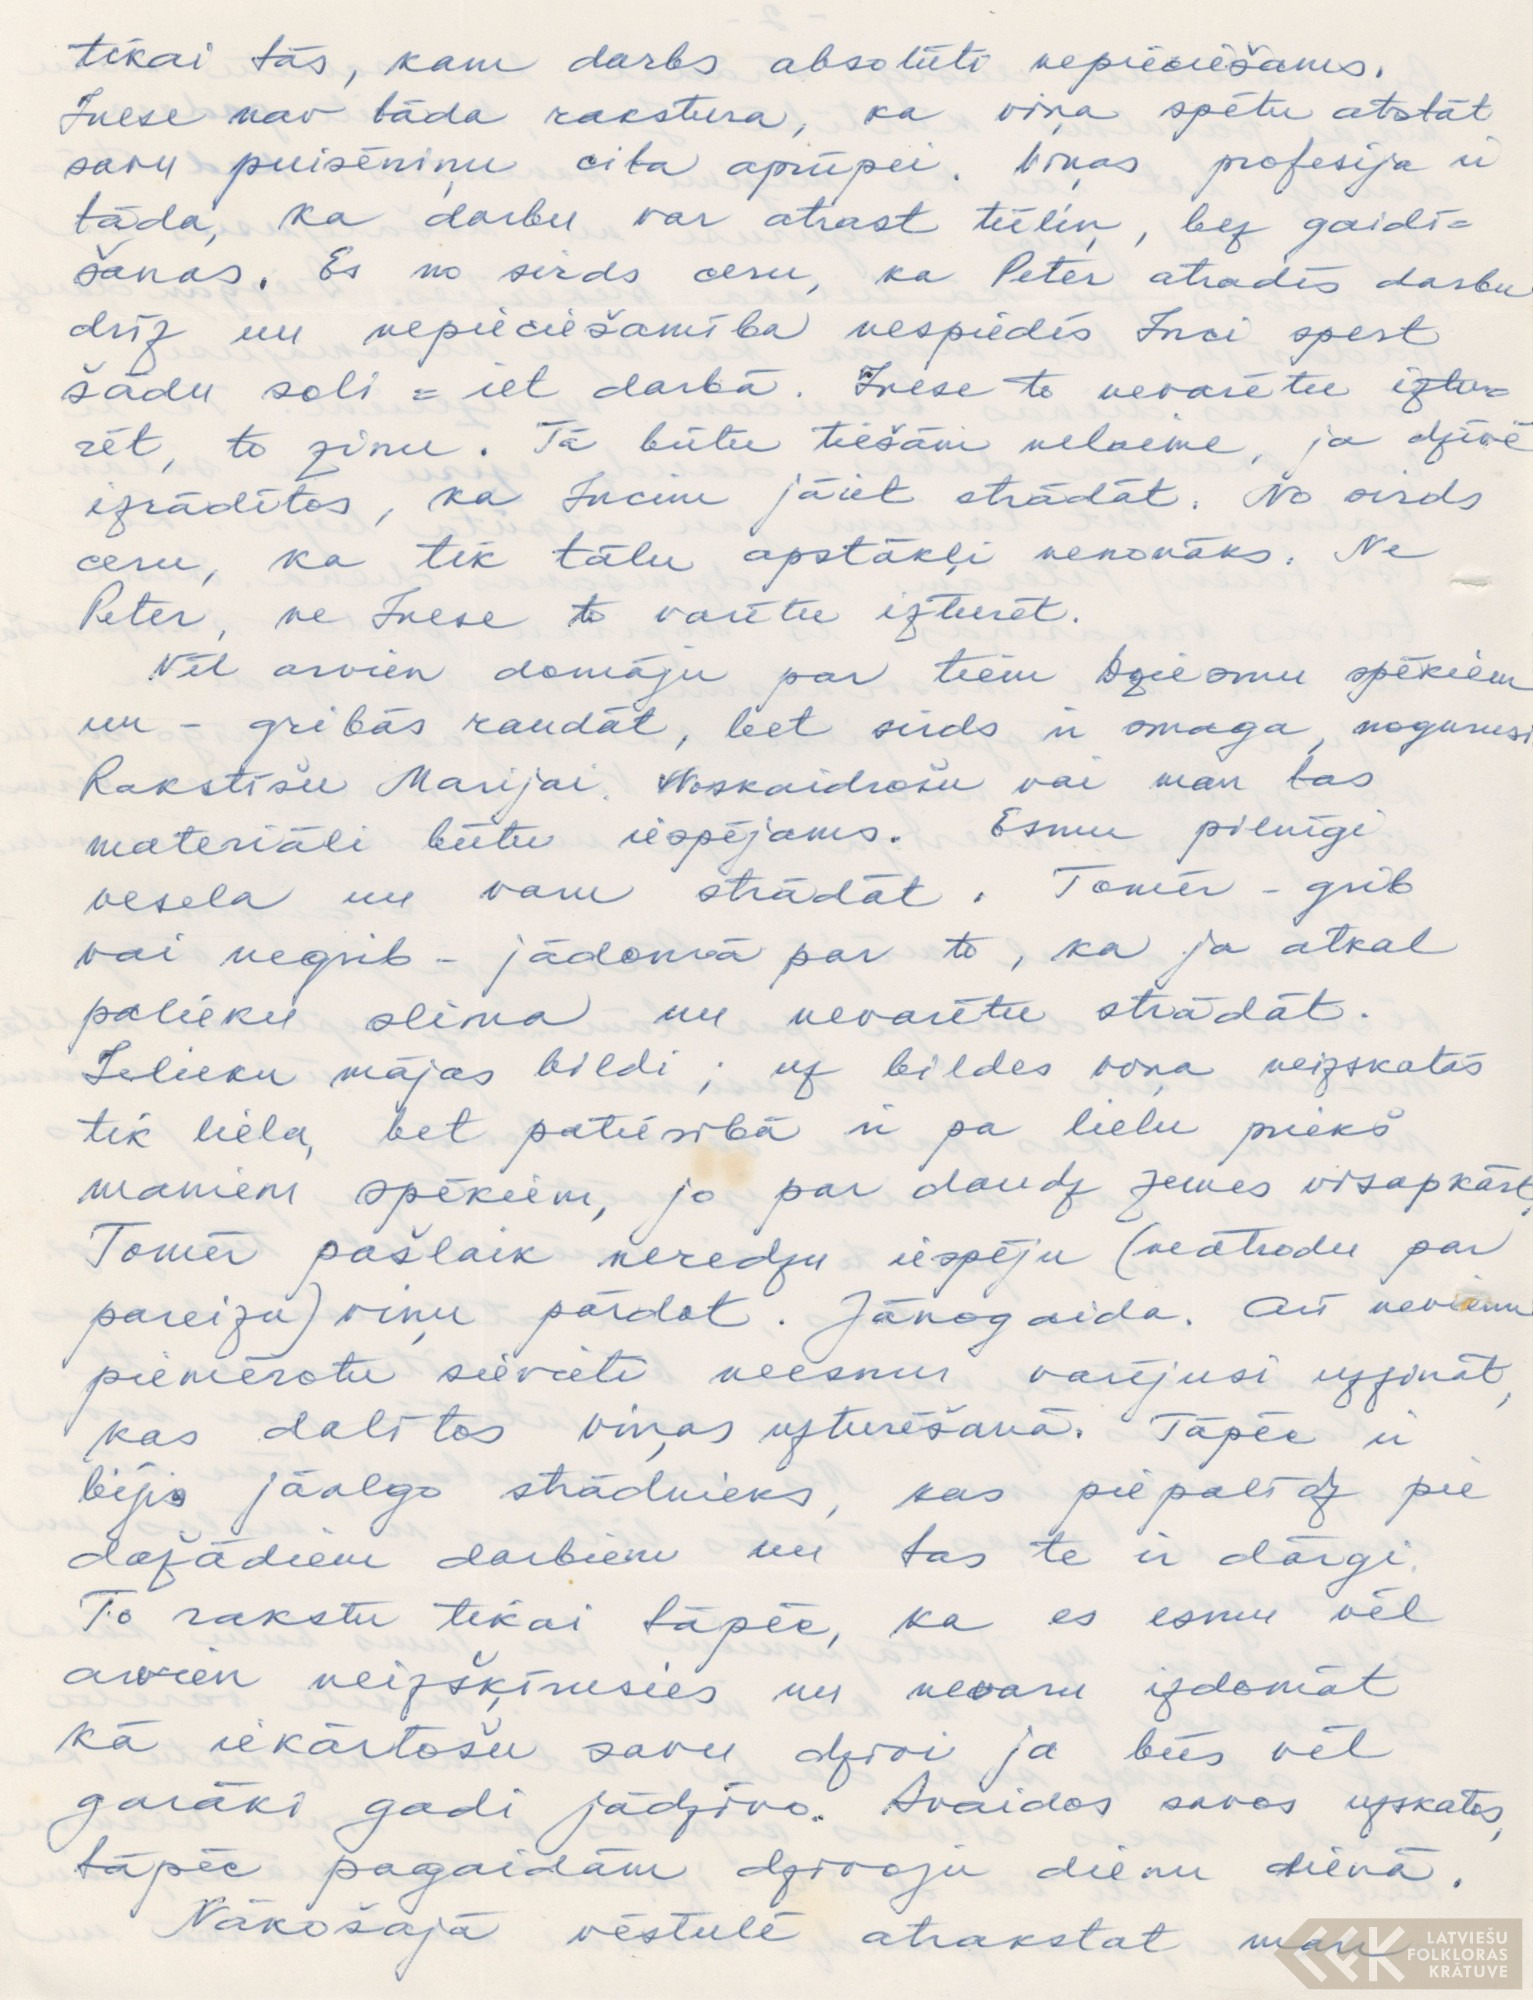 tikai tās, kam darbs absolūti nepieciešams.
Inese nav tāda rakstura, ka viņa spētu atstāt
savu puisēniņu cita aprūpei. Viņas profesija ir
tāda, ka darbu var atrast tūliņ, bez gaidī=
šanas. Es no sirds ceru, ka Peter atradīs darbu
drīz un nepieciešamība nespiedīs Inci spert
šādu soli = iet darbā. Inese to nevarētu iztu=
rēt, to zinu. Tā būtu tiešām nelaime, ja dzīvē
izrādītos, ka Incim jāiet strādāt. No sirds
ceru, ka tik tālu apstākļi nenonāks. Ne
Peter, ne Inese to varētu izturēt.
Vēl arvien domāju par tiem Dziesmu spēkiem
un - gribās raudāt, bet sirds ir smaga, nogurusi
Rakstīšu Marijai. Noskaidrošu vai man tas
materiāli būtu iespējams. Esmu pilnīgi
vesela un varu strādāt. Tomēr - grib
vai negrib - jādomā par to, ka ja atkal
palieku slima un nevarētu strādāt.
Ielieku mājas bildi; uz bildes viņa neizskatās
tik liela, bet patiesībā ir pa lielu priekš
maniem spēkiem, jo par daudz zemes visapkārt,
Tomēr pašlaik neredzu iespēju (neatrodu par
pareizu) viņu pārdot. Jānogaida. Arī nevienu
piemērotu sievieti neesmu varējusi uzzināt,
kas dalītos viņas uzturēšanā. Tāpēc ir
bijis jāalgo strādnieks, kas piepalīdz pie
dažādiem darbiem un tas te ir dārgi.
To rakstu tikai tāpēc, ka es esmu vēl
arvien neizšķīrusies un nevaru izdomāt
kā iekārtošu savu dzīvi ja būs vēl
garāki gadi jādzīvo. Svaidos savos uzskatos,
tāpēc pagaidām dzīvoju dienu dienā.
Nākošajā vēstulē atrakstat man
LATVIEŠU
FOLKLORAS
KRĀTUVE